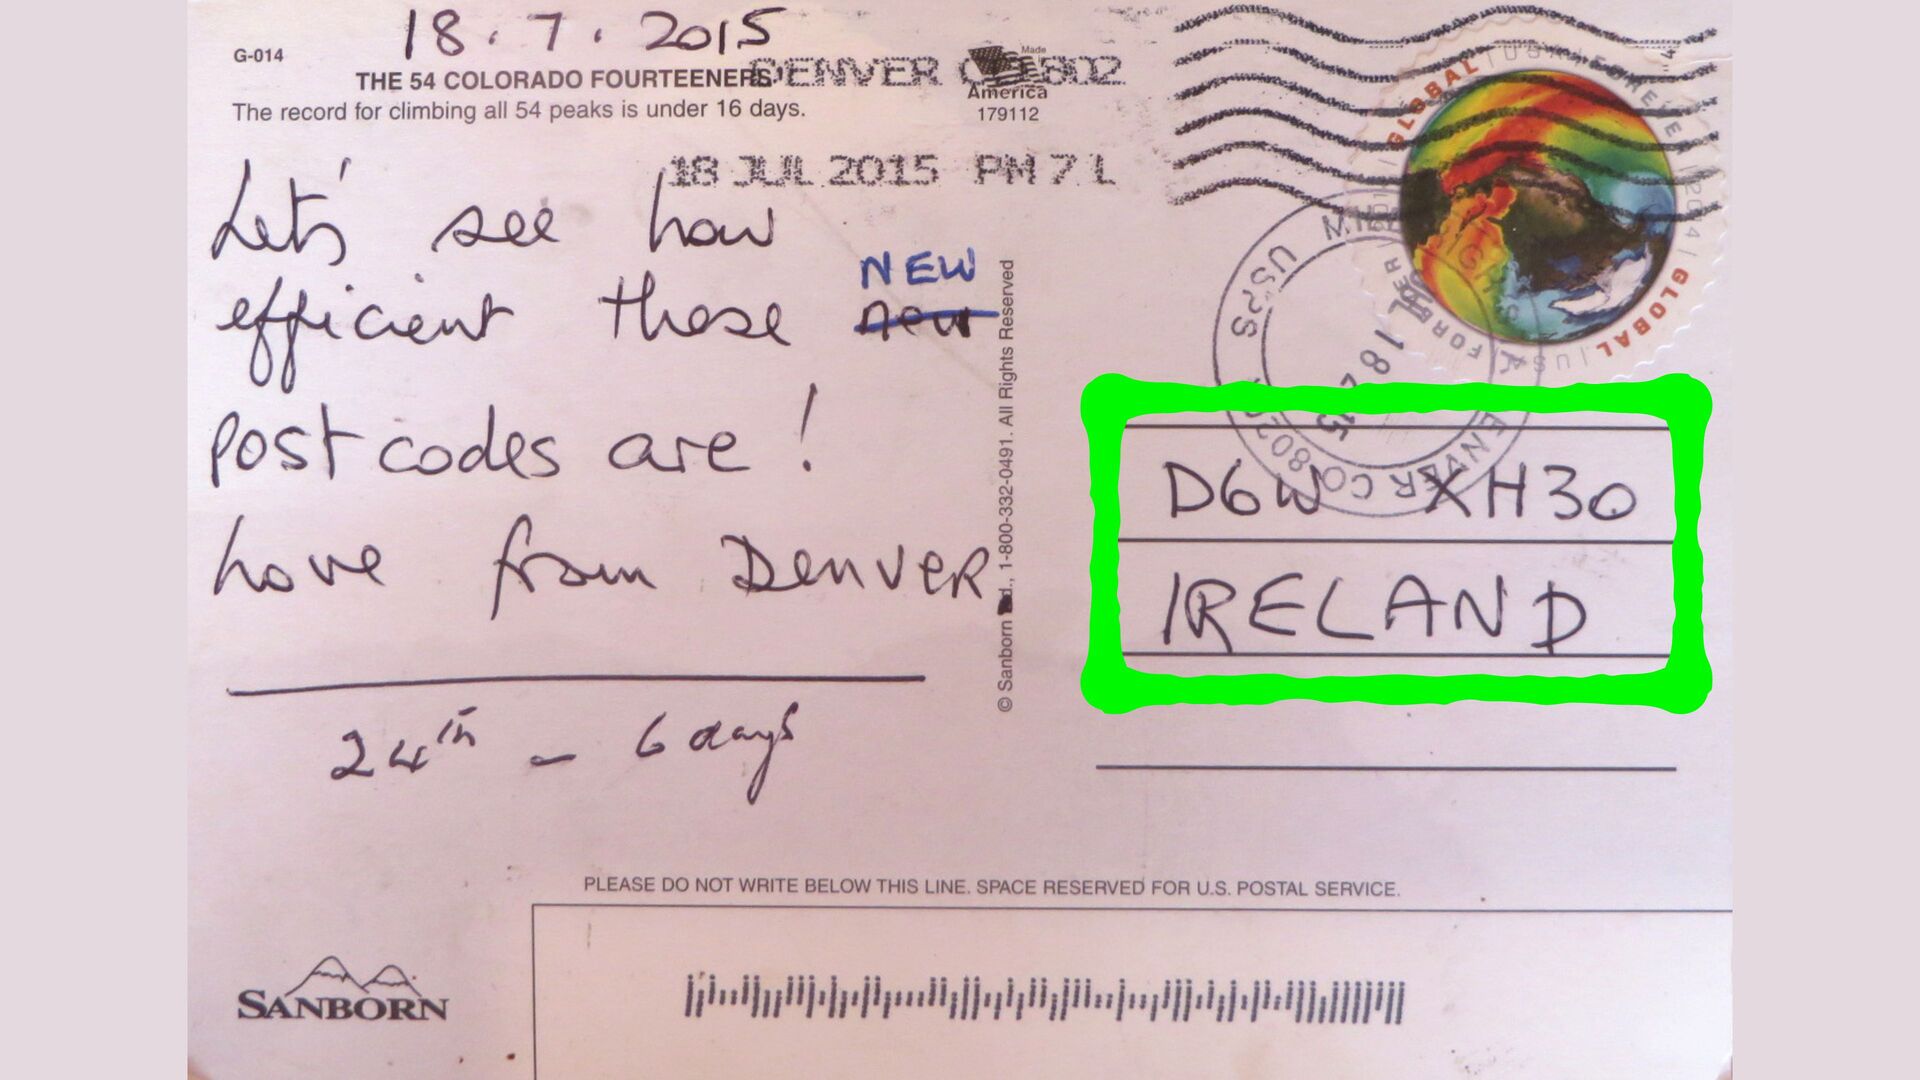 18.7.2015
G-014
THE 54 COLORADO FOURTEENERS
The record for climbing all 54 peaks is under 16 days.
DENVER 802
Made
America
179112
18 JUL 2015 PM 7 L
Let's see how
efficient these new NEW
post codes are!
Love from Denver.
24th - 6 days
© Sanborn Ltd., 1-800-332-0491. All Rights Reserved
GLOBAL USA FOREVER 2014
GLOBAL USA FOREVER
USPS
DENVER CO 802
D6W XH30
IRELAND
PLEASE DO NOT WRITE BELOW THIS LINE. SPACE RESERVED FOR U.S. POSTAL SERVICE.
SANBORN